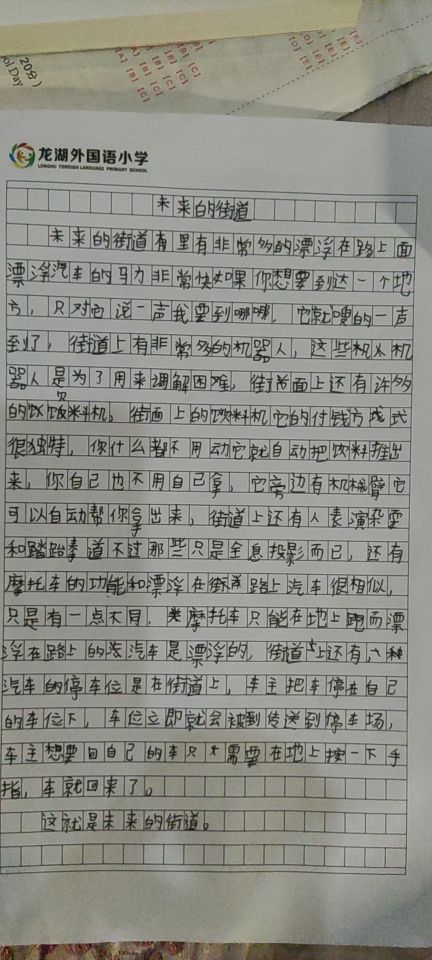 20分)
ol Day
[A] [B] [C]
[A] [B] [C]
[A] [B] [C]
[D] [E]
龙湖外国语小学
LONGHU FOREIGN LANGUAGE PRIMARY SCHOOL
未来的街道
未来的街道里有非常多的漂浮在路上面
漂浮汽车的马力非常快如果你想要到达一个地
方，只对它说一声我要到哪哪，它就嗖的一声
到了，街道上有非常多的机器人，这些机机
器人是为了用来调解困难，街面上还有许多
的饮料机。街面上的饮料机它的付钱方式
很独特，你什么都不用动它就自动把饮料推出
来，你自己也不用自己拿，它旁边有机械臂它
可以自动帮你拿出来，街道上还有人表演杂耍
和跆拳道不过那些只是全息投影而已，还有
摩托车的功能和漂浮在路上汽车很相似，
只是有一点不同，摩托车只能在地上跑而漂
浮在路上的汽车是漂浮的，街道上还有，一种
汽车的停车位是在街道上，车主把车停在自己
的车位下，车位立即就会被传送到停车场，
车主想要回自己的车只需要在地上按一下手
指，车就回来了。
这就是未来的街道。